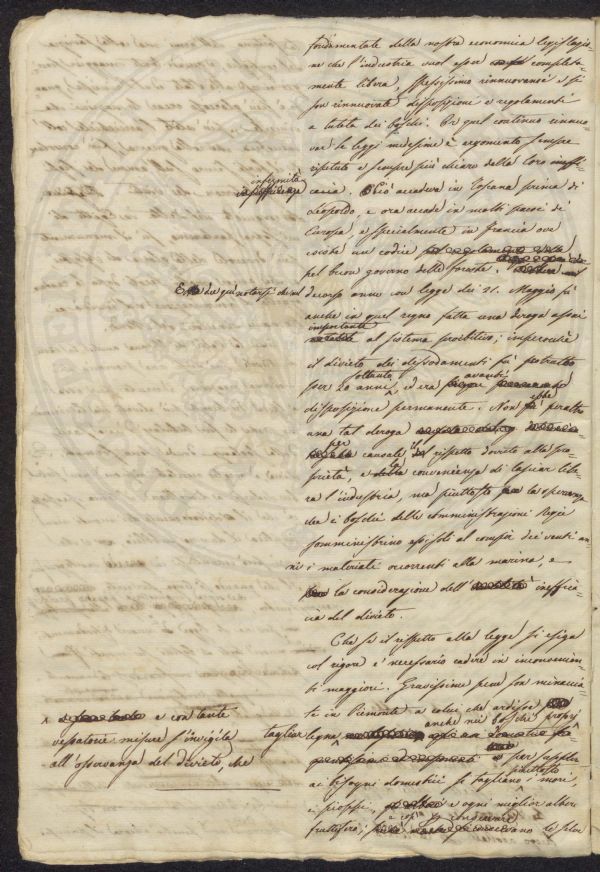 fondamentale della nostra economica legislazio-
ne che l'industria vuol esser completa-
mente libera, spessissimo rinnuovansi e si
son rinnuovate disposizioni e regolamenti
a tutela dei boschi. Or quel continuo rinnuo-
var le leggi medesime è argomento sempre
ripetuto e sempre più chiaro della loro ineffi-
cacia. Ciò accadeva in Toscana prima di
Leopoldo, e ora accade in molti paesi di
Europa, e specialmente in Francia ove
un codice
pel buon governo delle foreste.
decorso anno con legge dei 21. Maggio fù
anche in quel regno fatta una deroga assai
importante
al sistema proibitivo; imperocchè
il divieto dei dissodamenti fù protratto
soltanto avanti
per 20 anni, ed era
disposizione permanente. Non ebbe peraltro
una tal deroga
per causale il rispetto dovuto alla pro-
prietà, e la convenienza di lasciar libe-
ra l'industria, ma piuttosto la speranza
che i boschi delle amministrazioni Regie
somministrino al compir dei venti an-
ni i materiali occorrenti alla marina, e
la considerazione dell' ineffica-
cia del divieto.
Che se il rispetto alla legge si esiga
col rigore è necessario cadere in inconvenien-
ti maggiori. Gravissime pene son minaccia-
te in Piemonte a colui che ardisse
anche nei boschi proprj
tagliar legna
per supplire
piuttosto
ai bisogni domestici si tagliano i mori,
i pioppi, e ogni miglior albero
e così si conservano
fruttifero; le selve
infinità
È da qui notarsi che nel
e con tante
vessatorie misure s'invigila
all'osservanza del divieto, che